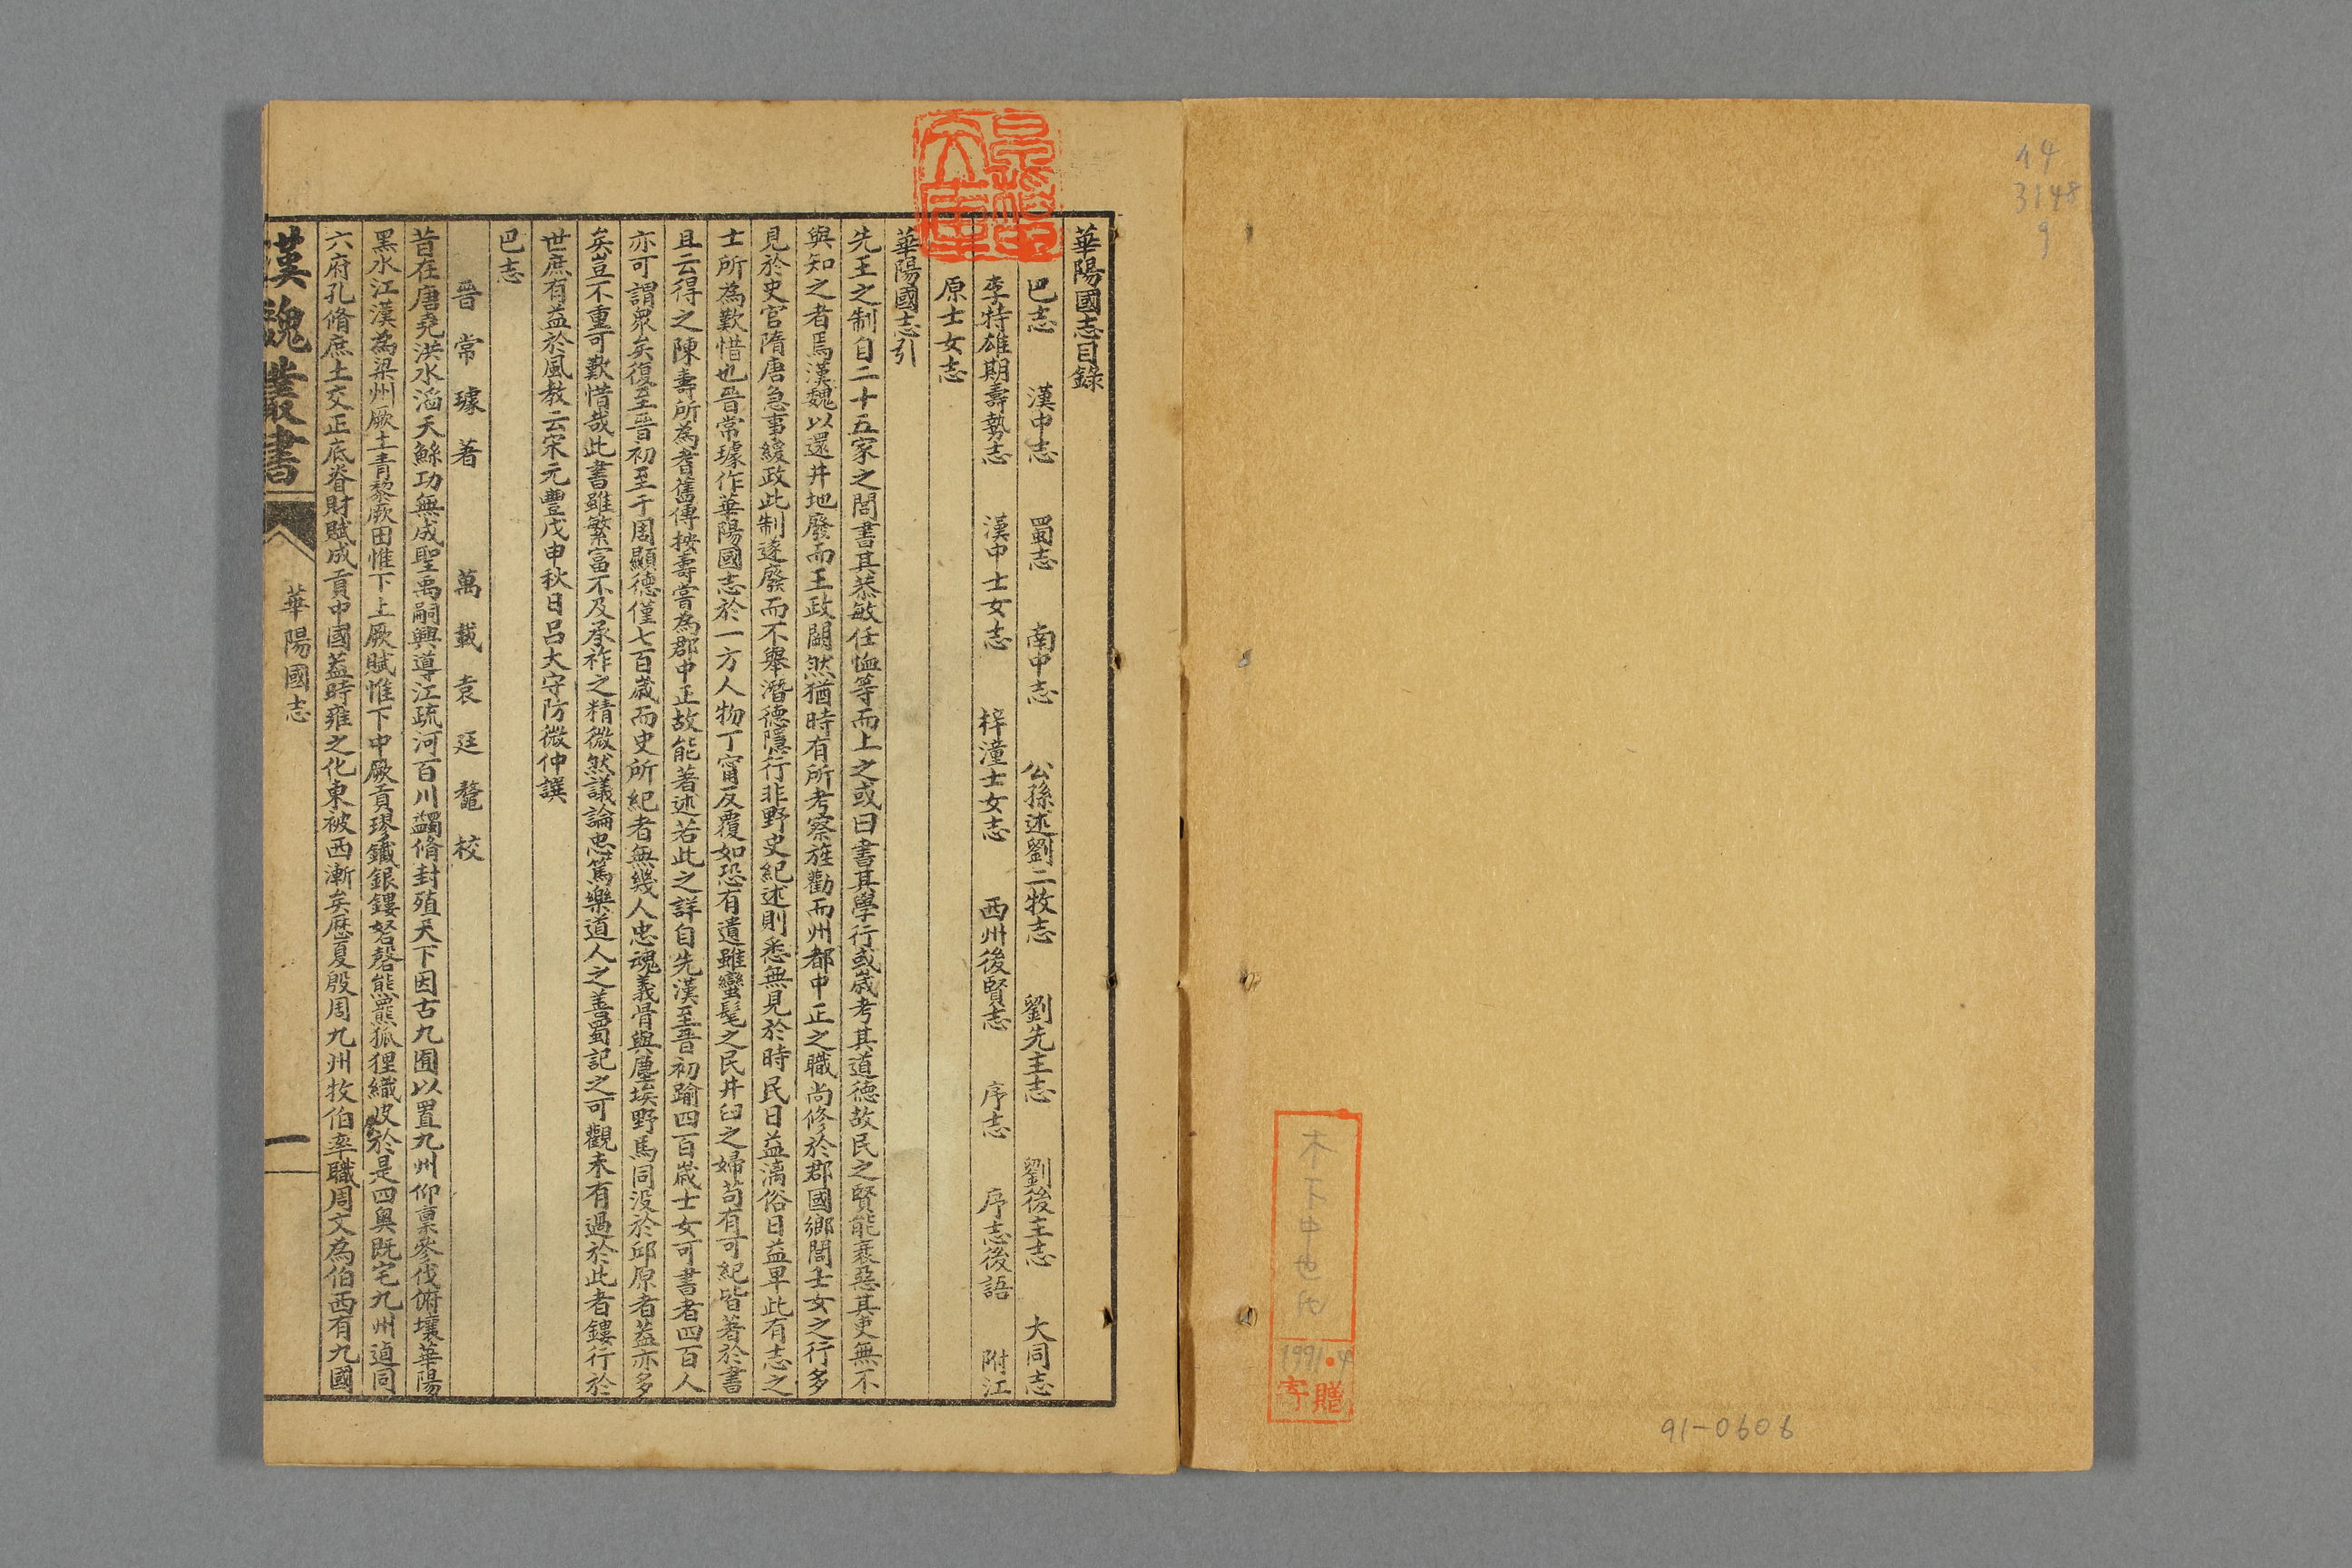 3148
9
1991.4
寄贈
91-0606
華陽國志目錄
巴志 漢中志 蜀志 南中志 公孫述劉二牧志 劉先主志 劉後主志 大同志
李特雄期壽勢志 漢中士女志 梓潼士女志 西州後賢志 序志 序志後語 附江
原士女志
華陽國志引
先王之制自二十五家之閭書其恭敏任恤等而上之或曰書其學行或歲考其道德故民之賢能衺惡其吏無不
與知之者焉漢魏以還井地廢而王政闕然猶時有所考察旌勸而州都中正之職尚修於郡國鄉閭士女之行多
見於史官隋唐急事緩政此制遂廢而不舉潛德隱行非野史紀述則悉無見於時民日益漓俗日益卑此有志之
士所為歎惜也晉常璩作華陽國志於一方人物丁甯反覆如恐有遺雖蠻髦之民井臼之婦苟有可紀皆著於書
且云得之陳壽所為耆舊傳按壽嘗為郡中正故能著述若此之詳自先漢至晉初踰四百歲士女可書者四百人
亦可謂眾矣復至晉初至于周顯德僅七百歲而史所紀者無幾人忠魂義骨與塵埃野馬同沒於邱原者蓋亦多
矣豈不重可歎惜哉此書雖繁富不及承祚之精微然議論忠篤樂道人之善蜀記之可觀未有過於此者鏤行於
世庶有益於風教云宋元豐戊申秋日呂大守防微仲譔
巴志
晉常璩著 萬載袁廷鼇校
昔在唐堯洪水滔天鯀功無成聖禹嗣興導江疏河百川蠲脩封殖天下因古九囿以置九州仰稟參伐俯壤華陽
黑水江漢為梁州厥土青黎厥田惟下上厥賦惟下中厥貢璆鐵銀鏤砮磬熊羆狐狸織皮於是四奧既宅九州逌同
六府孔脩庶土交正底眘財賦成貢中國蓋時雍之化東被西漸矣歷夏殷周九州牧伯率職周文為伯西有九國
漢魏叢書 華陽國志 一